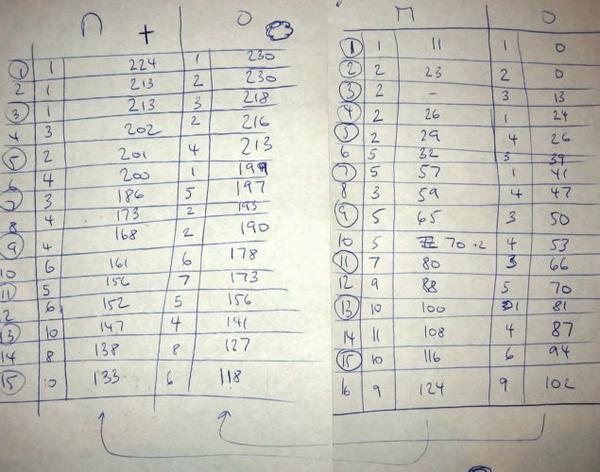 n + O
① 1 224 1 230
2 1 213 2 230
③ 1 213 3 218
4 3 202 2 216
⑤ 2 201 4 213
6 4 200 1 199
⑦ 3 186 5 197
8 4 173 2 193
⑨ 4 168 2 190
10 6 161 6 178
⑪ 5 156 7 173
12 6 152 5 156
⑬ 10 147 4 141
14 8 138 8 127
⑮ 10 133 6 118
П O
① 1 11 1 0
② 2 23 2 0
③ 2 - 3 13
④ 2 26 1 24
⑤ 2 29 4 26
6 5 32 3 39
⑦ 5 57 1 41
8 3 59 4 47
⑨ 5 65 3 50
10 5 70 +2 4 53
⑪ 7 80 3 66
12 9 88 5 70
⑬ 10 100 1 81
14 11 108 4 87
⑮ 10 116 6 94
16 9 124 9 102